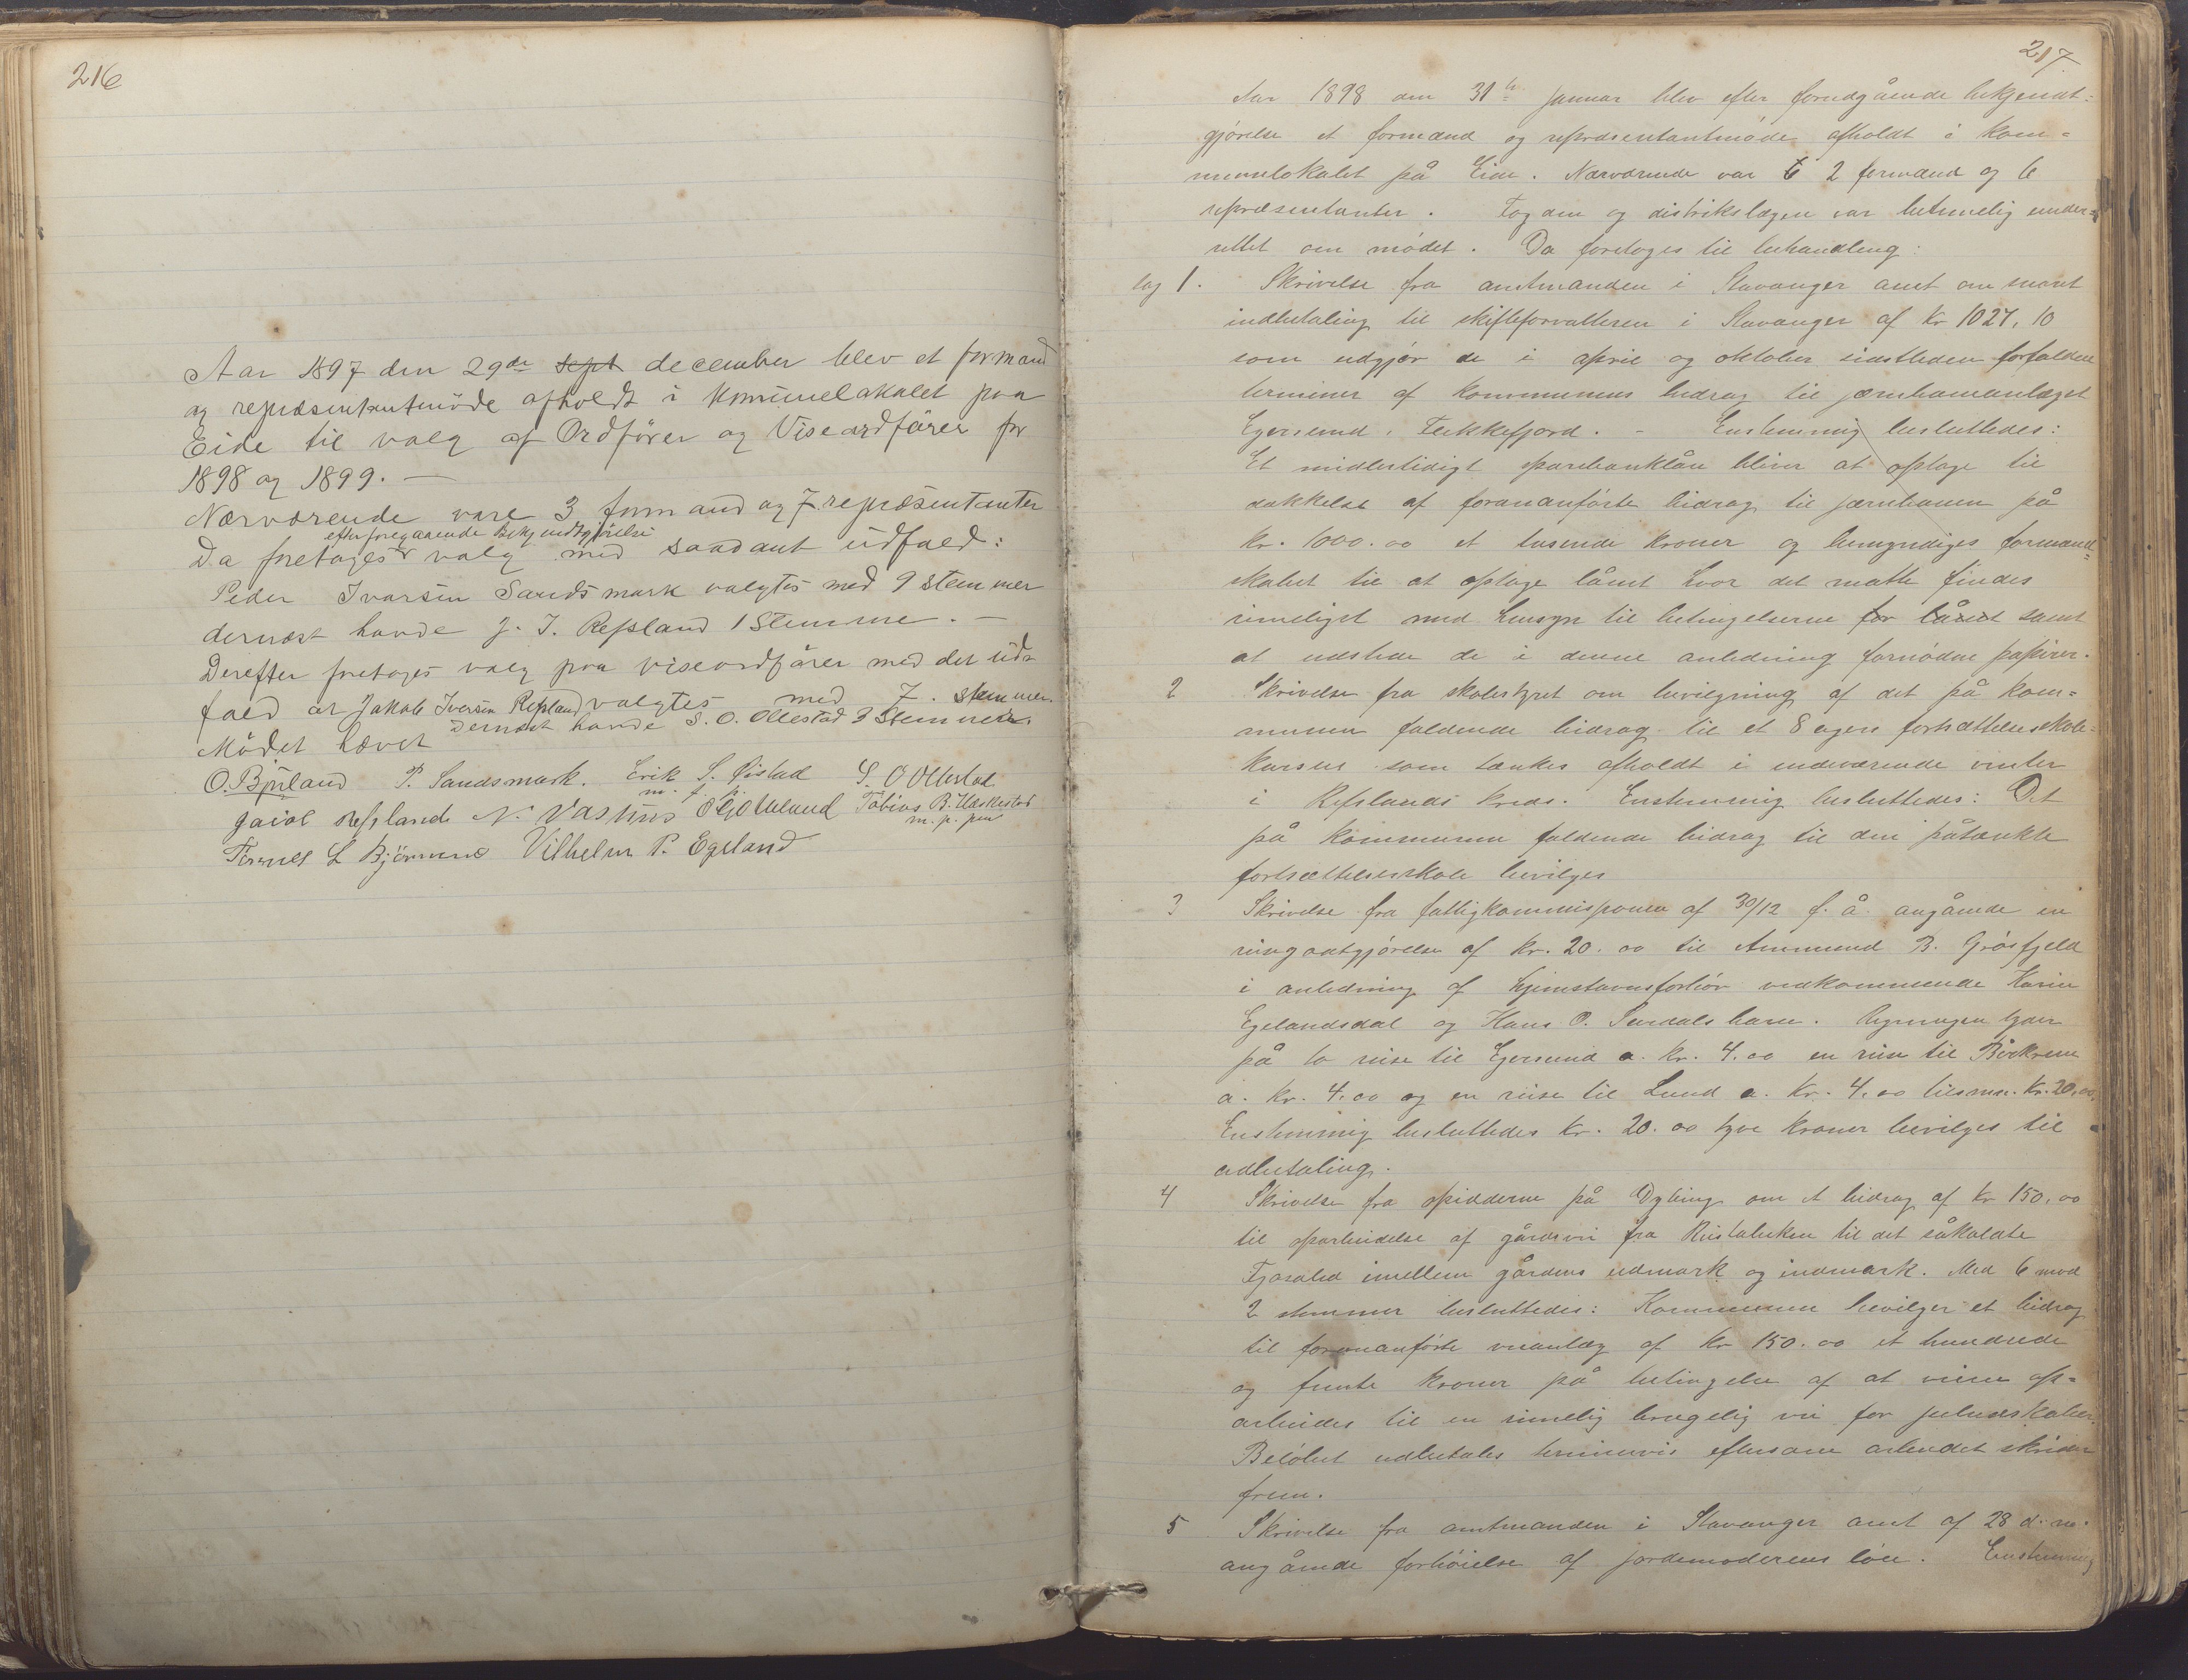 216
Aar 1897 den 29de sept december blev et formand
og repræsentantmøde afholdt i Kommunelokalet paa
Eide til valg af Ordfører og Viseordfører for
1898 og 1899. —
Nærværende vare 3 formand og 7 repræsentanter
efter foregaaende Bekjendtgjörelse
Da foretoges valg med saadant udfald:
Peder Ivarsen Sandsmark valgtes med 9 stemmer
dernæst havde J. I. Refsland 1 Stemme. —
Derefter foretoges valg paa viseordfører med det ud-
fald at Jakob Iversen Refsland valgtes med 7. stemmer.
Dernæst havde S. O. Ollestad 3 Stemmer.
Mödet hævet
O. Bjuland P. Sandsmark. Erik S. Øistad S. O Ollestad
m. f. p.
Refsland N. Vashus O Gjotteland Tobias B. Haskestad
m. p. pen
L Bjørnmo Vilhelm P. Egeland
217
Aar 1898 den 31te januar blev efter forudgående bekjendt=
gjørelse et formænd og repræsentantmøde afholdt i kom=
munelokalet på Eide. Nærværende var 6 2 formænd og 6
repræsentanter. Fogden og distrikslægen var betimelig under=
rettet om mødet. Da foretoges til behandling:
Sag 1. Skrivelse fra amtmanden i Stavanger amt om snart
indbetaling til skifteforvalteren i Stavanger af kr 1027,10
som udgjør de i april og oktober sidstleden forfaldne
terminer af kommunens bidrag til jærnbaneanlæget
Egersund, Flekkefjord. - Enstemmig besluttedes:
Et midlertidigt sparebanklån bliver at optage til
dækkelse af forananførte bidrag til jærnbanen på
kr. 1000.00 et tusende kroner og bemyndiges formand=
skabet til at optage lånet hvor det måtte findes
rimeligst med hensyn til betingelserne for lånet samt
at udstede de i denne anledning fornødne papirer.
2 Skrivelse fra skolestyret om bevilgning af det på kom=
munen faldende bidrag til et 8 ugers fortsættelsesskole=
kursus som tænkes afholdt i indeværende vinter
i Refslands kreds. Enstemmig besluttedes: Det
på kommunen faldende bidrag til den påtænkte
fortsættelsesskole bevilges
3 Skrivelse fra fattigkommissionen af 30/12 f. å. angående en
reisegodtgjørelse af kr. 20.00 til Ammund B. Gråsfjeld
i anledning af hjemstavnsforhør vedkommende Karin
Egelandsdal og Hans O. Surdals barn. Regningen lyder
på to reise til Egersund a. kr. 4.00 en reise til Birkrem
a. kr. 4.00 og en reise til Lund a. kr. 4.00 tilsm. kr. 20.00.
Enstemmig besluttedes kr. 20.00 tyve kroner bevilges til
udbetaling.
4 Skrivelse fra opsidderne på Dybing om et bidrag af kr 150.00
til oparbeidelse af gårdsvei fra Ristabeken til det såkaldte
imellem gårdens udmark og indmark. Med 6 mod
2 stemmer besluttedes: Kommunen bevilger et bidrag
til foranførte veianlæg af kr 150.00 et hundrede
og femti kroner på betingelse af at veien op=
arbeides til en rimelig brugelig vei for hjulredskaber.
Beløbet udbetales terminvis eftersom arbeidet skrider
frem.
5 Skrivelse fra amtmanden i Stavanger amt af 28 d. m.
angående forhøielse af jordemoderens løn. Enstemmig